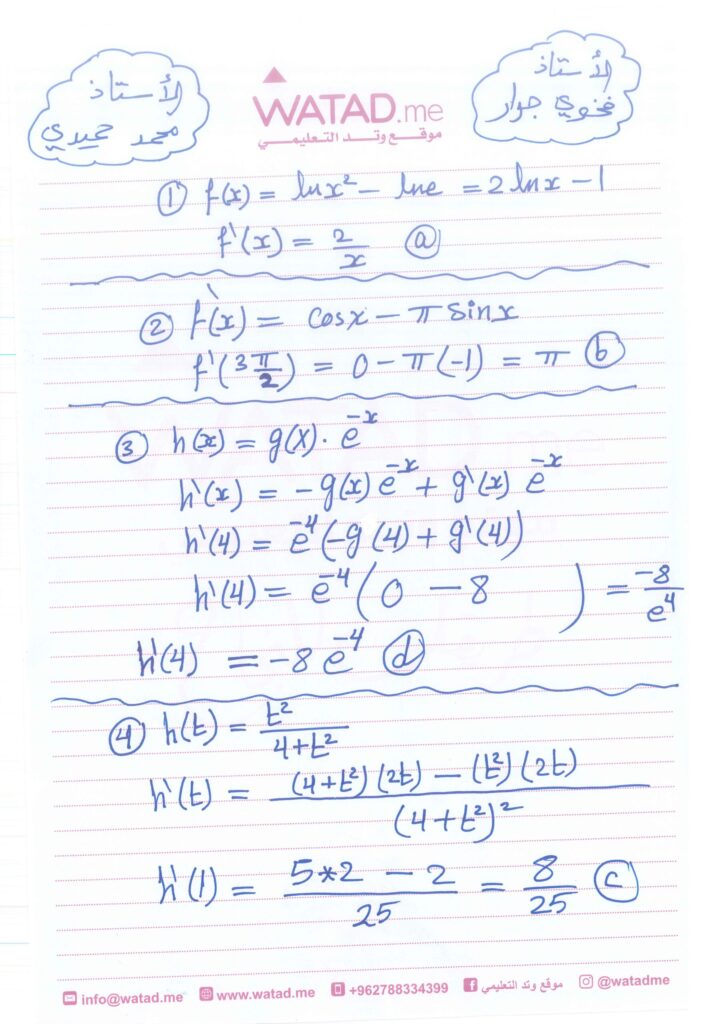 الأستاذ
فخوي جوار
WATAD.me
موقع وتد التعليمي
الأستاذ
محمد حميدي
① f(x) = lnx² - lne = 2 lnx - 1
f'(x) = 2/x ⓐ
② f'(x) = cosx - π sinx
f'(3π/2) = 0 - π(-1) = π ⓑ
③ h(x) = g(x) · e^-x
h'(x) = -g(x) e^-x + g'(x) e^-x
h'(4) = e^-4 (-g(4) + g'(4))
h'(4) = e^-4 (0 - 8) = -8/e^4
h'(4) = -8 e^-4 ⓓ
④ h(t) = t²/4+t²
h'(t) = (4+t²)(2t) - (t²)(2t)/(4+t²)²
h'(1) = 5*2 - 2/25 = 8/25 ⓒ
info@watad.me www.watad.me +962788334399 موقع وتد التعليمي @watadme